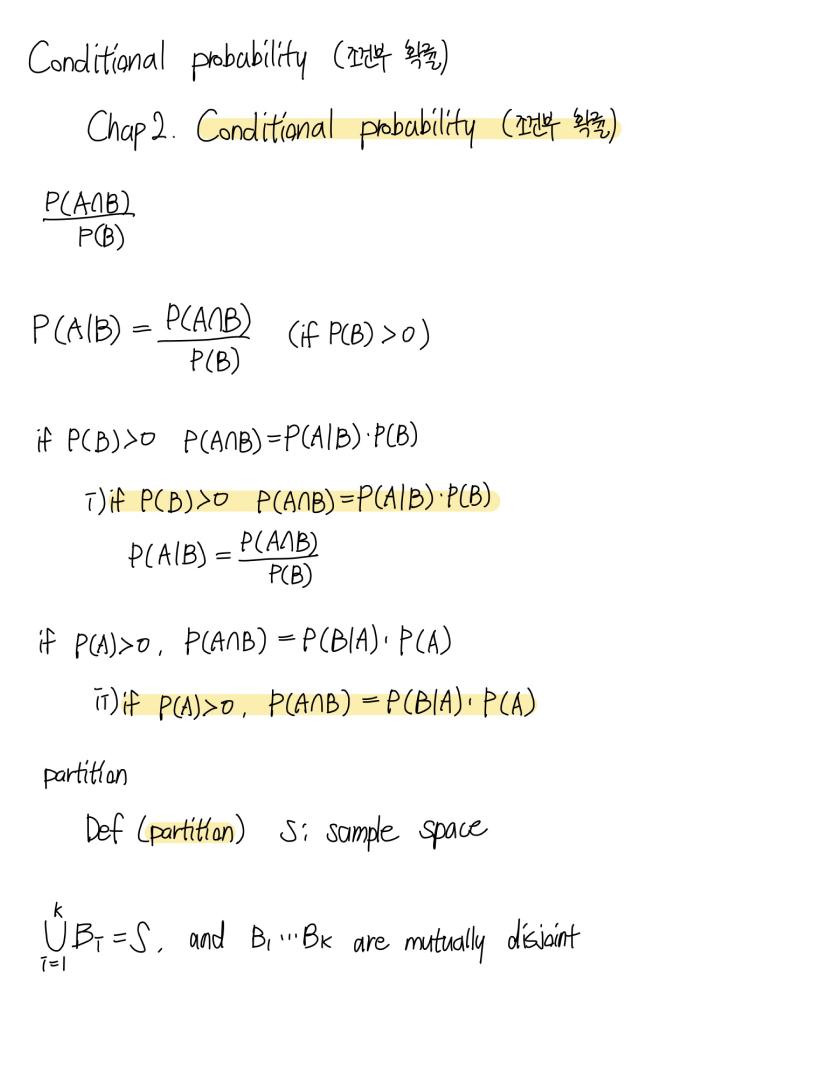 Conditional probability (조건부 확률)
Chap 2. Conditional probability (조건부 확률)
P(A∩B)
P(B)
P(A|B) = P(A∩B) / P(B) (if P(B) > 0)
if P(B)>0 P(A∩B)=P(A|B)·P(B)
i) if P(B)>0 P(A∩B)=P(A|B)·P(B)
P(A|B) = P(A∩B) / P(B)
if P(A)>0, P(A∩B) = P(B|A)·P(A)
ii) if P(A)>0, P(A∩B) = P(B|A)·P(A)
partition
Def (partition) S: sample space
k
∪ Bi = S, and B1 ⋯ Bk are mutually disjoint
i=1